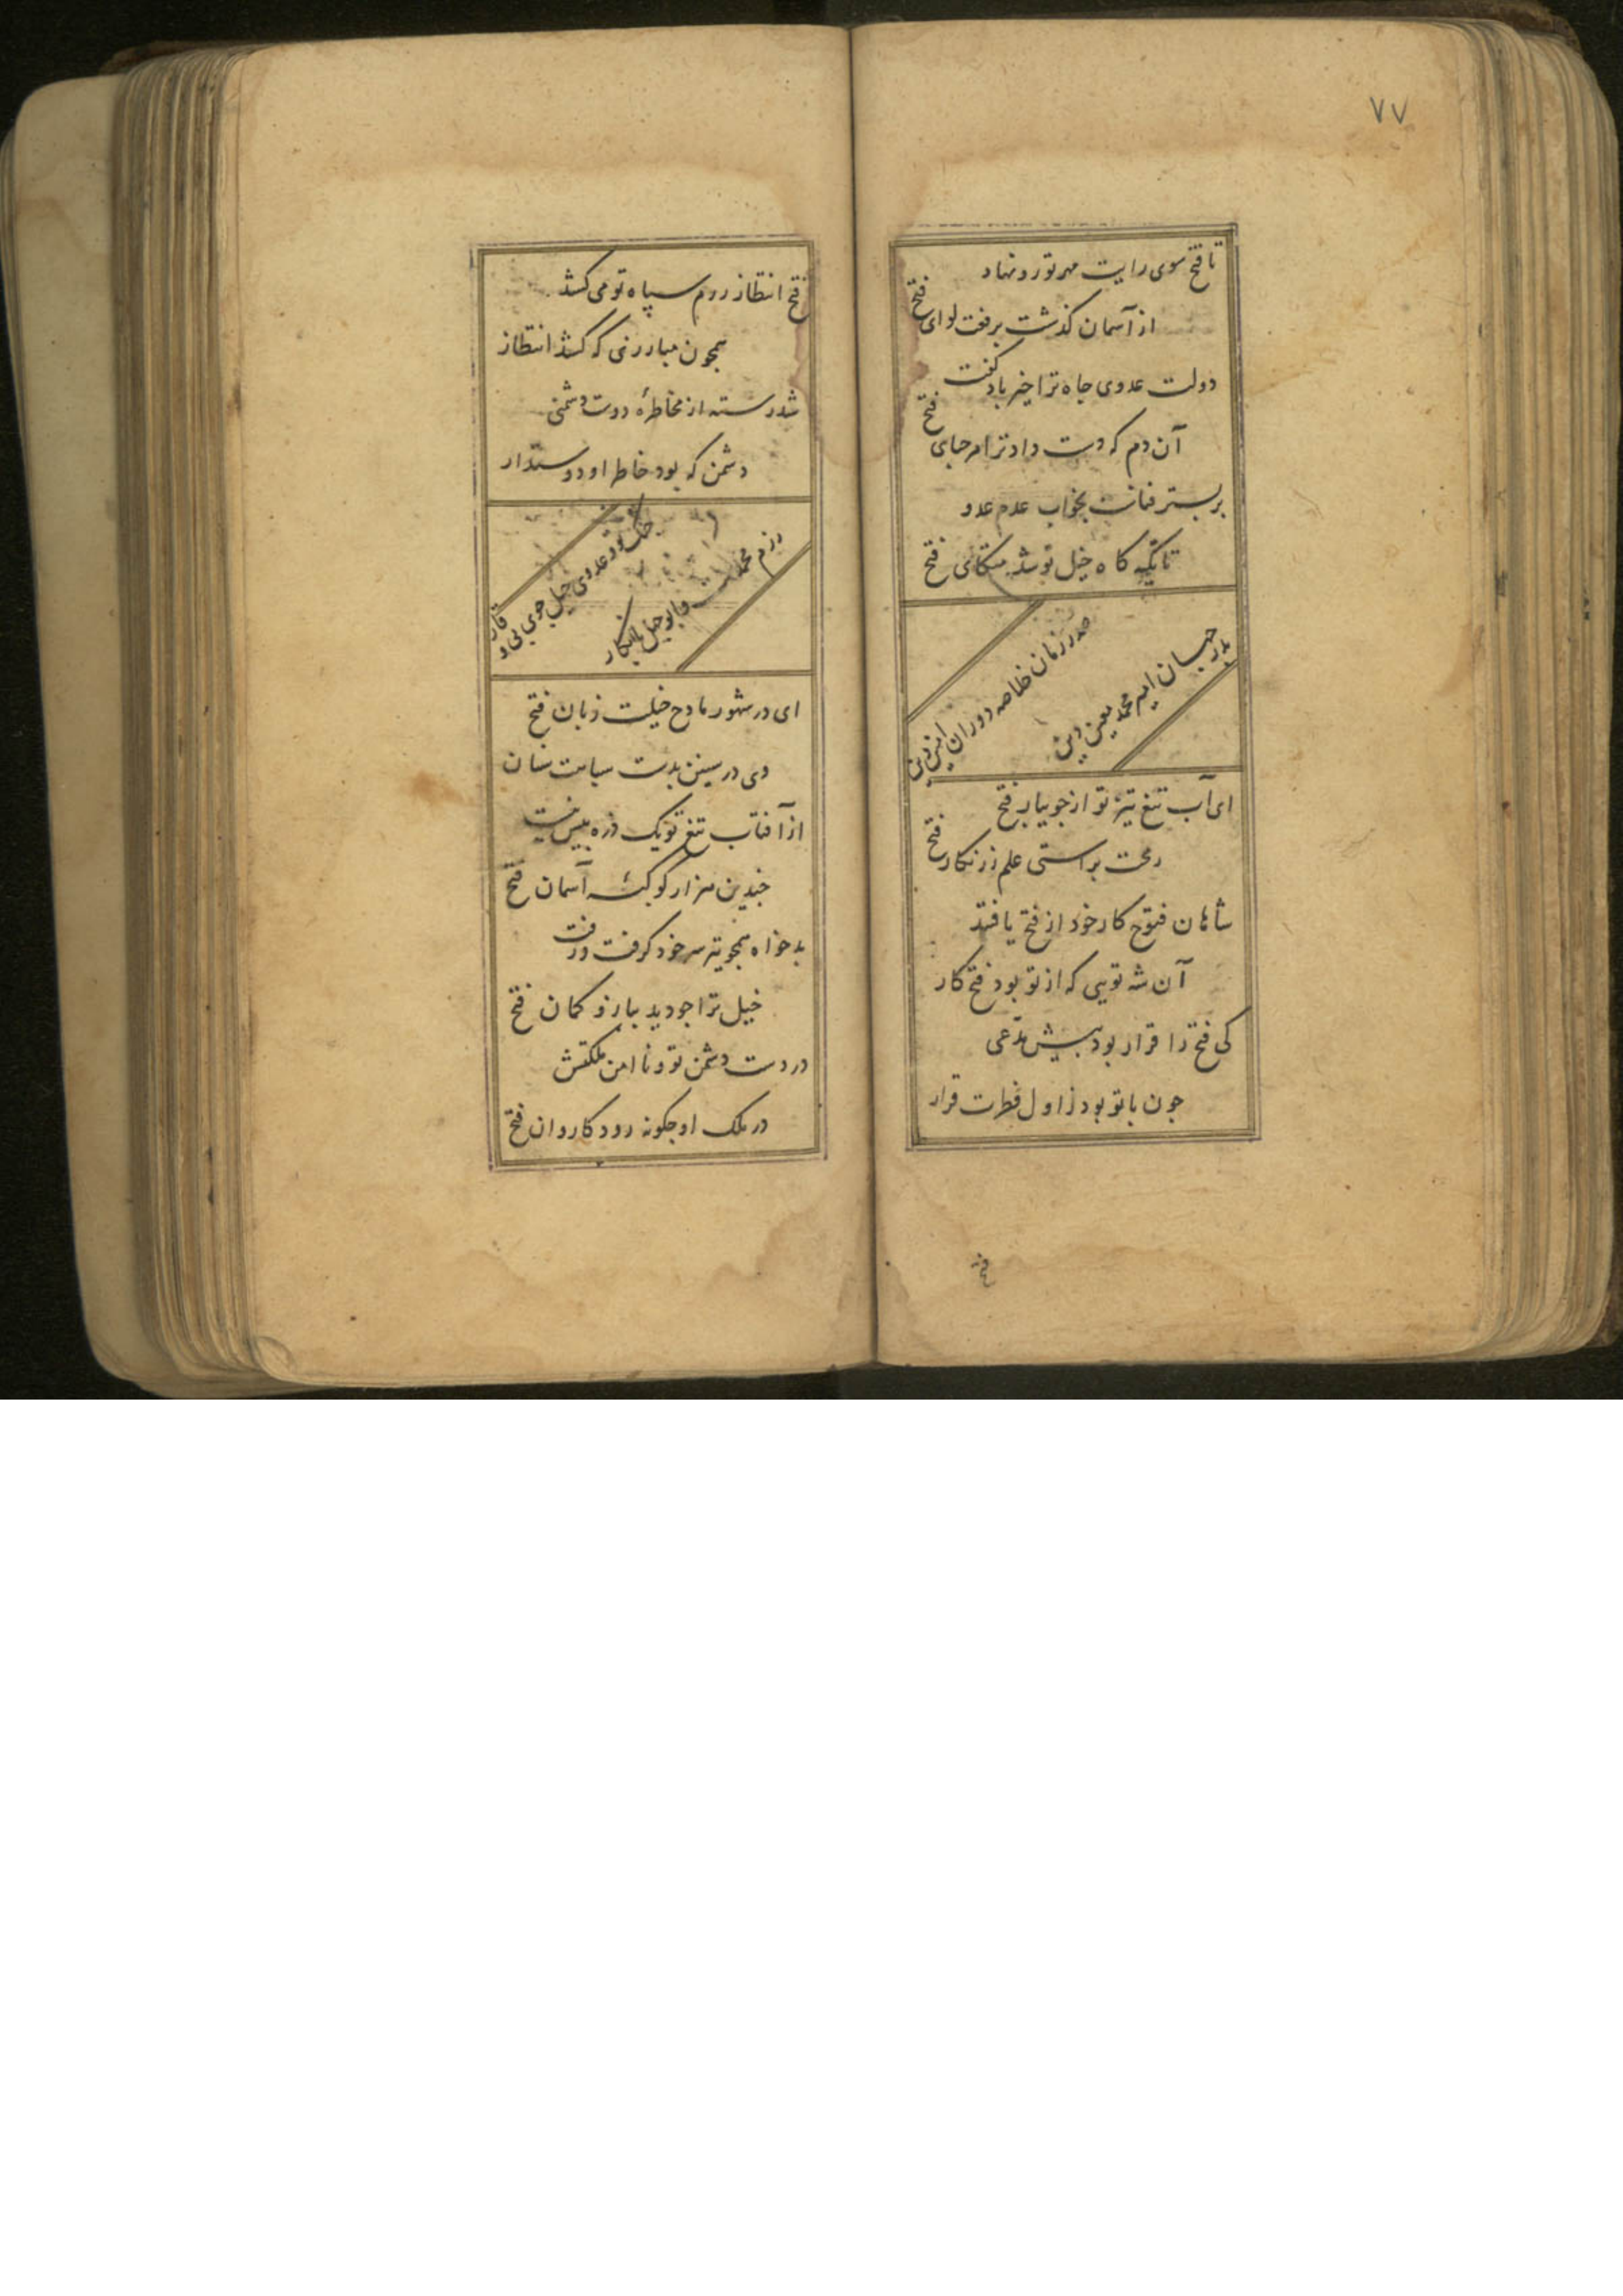 ۷۷
تا فتح سوی رایت مهر تو رو نهاد
از آسمان کذشت برفعت لوای فتح
دولت عدوی جاه ترا خیر باد کفت
آن دم که دست داد ترا مرحبای فتح
بر بستر فناست بخواب عدم عدو
تا تکیه کاه خیل تو شد متکای فتح
صدر زمان خلاصه دوران امین دین
بدر جهان امیم محمد معین دین
ای آب تیغ تیز تو از جویبار فتح
رمحت براستی علم زرنکار فتح
شاهان فتوح کار خود از فتح یافتند
آن شه تویی که از تو بود فتح کار
کی فتح را قرار بود پیش مدعی
جون با تو بود ز اول فطرت قرار
فتح
فتح انتظار رزم سپاه تو می کشد
همجون مبارزی که کشد انتظار
شد رسته از مخاطرهٔ دوست دشمنی
دشمن که بود خاطر او دوستدار
جنک تو و عدوی جهل جوی بی وقار
رزم محمدست و ابو جهل نابکار
ای در شهور مادح خیلت زبان فتح
وی در سنین بدست سپاهت سنان
از آفتاب تیغ تو یک ذره بیش نیست
جندین هزار کوکبهٔ آسمان فتح
بدخواه همجو تیر سر خود کرفت و رفت
خیل ترا جو دید ببازو کمان فتح
در دست دشمن تو و نا امن مملکتش
در ملک او جکونه رود کاروان فتح